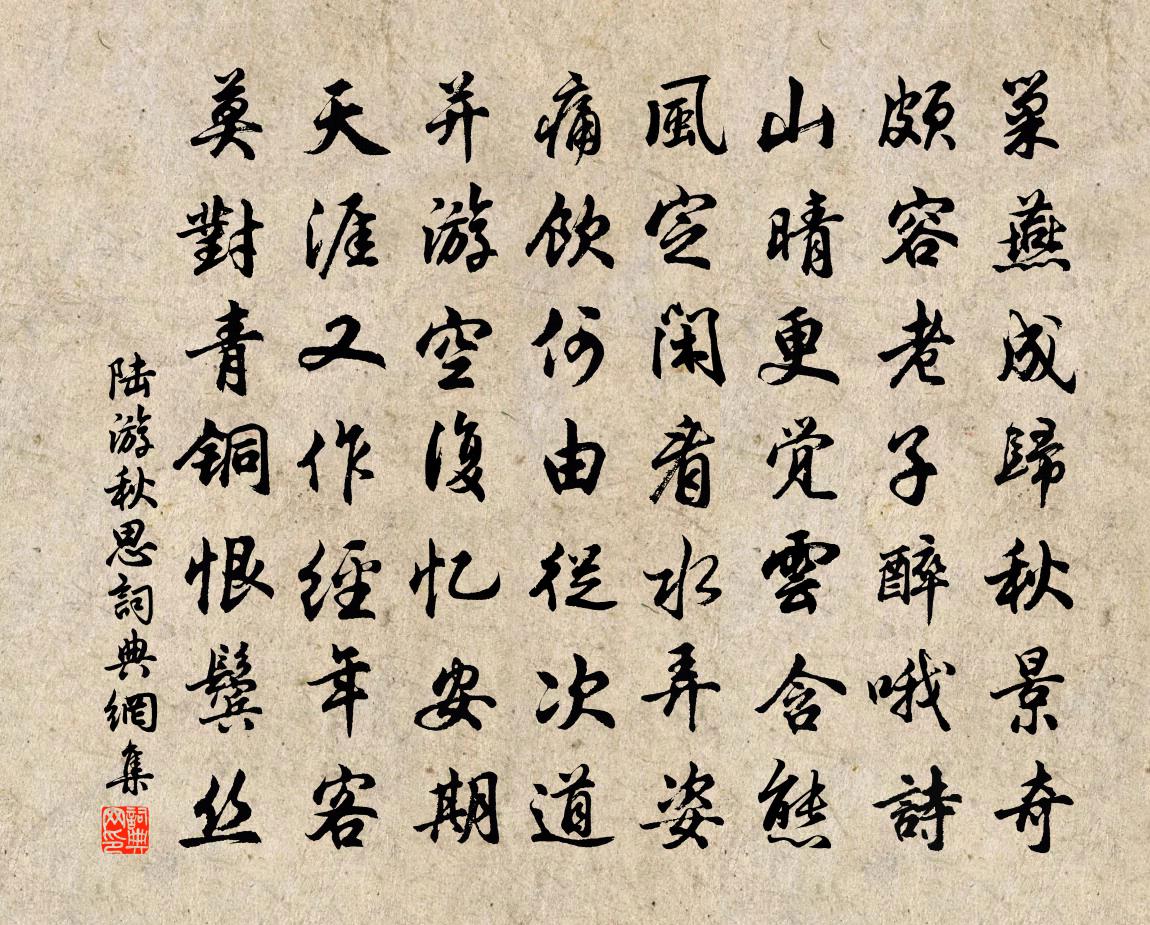 巢燕成歸秋景奇
頗容老子醉哦詩
山晴更觉雲含態
風定閑看水弄姿
痛飲何由從次道
并游空復忆安期
天涯又作經年客
莫對青銅恨鬓丝
陆游秋思詞典網集
詞典網印